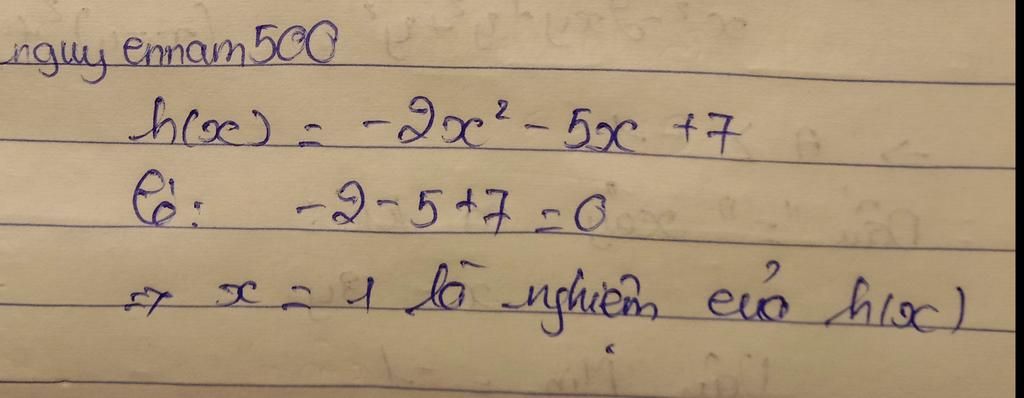 nguyennam500
h(x) = -2x² - 5x + 7
Có: -2 - 5 + 7 = 0
=> x = 1 là nghiệm của h(x)